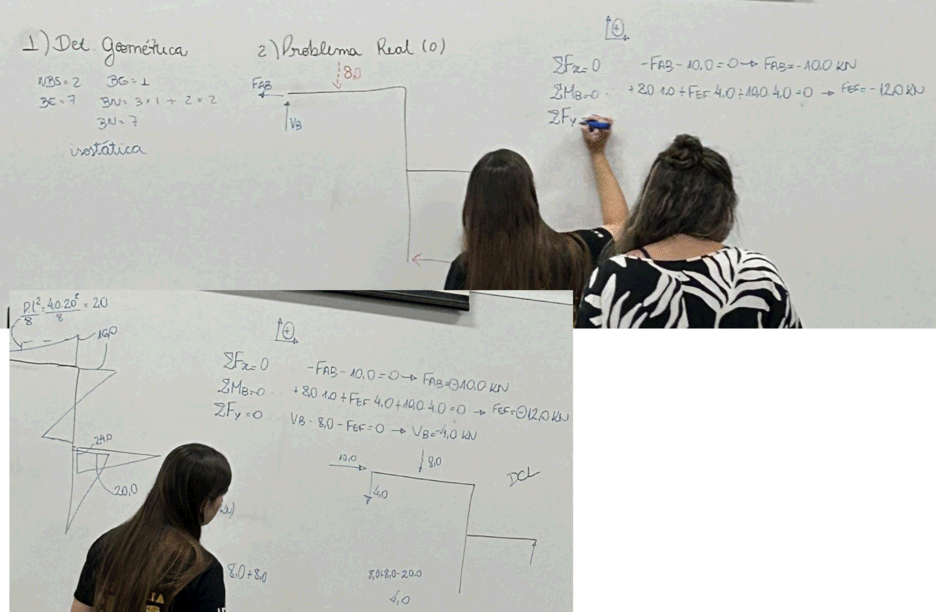 1) Det. Geométrica
NBS = 2 BG = 1
BE = 7 BN = 3 x 1 + 2 x 2
BN = 7
isostática
2) Problema Real (0)
8,0
FAB
VB
ΣFx=0 -FAB - 10,0 = 0 → FAB = -10,0 kN
ΣMB=0 ... +8,0.1,0 + FEF.4,0 + 10,0.4,0 = 0 → FEF = -12,0 kN
ΣFy
Pl²/8 = 40.20²/8 = 20
16,0
ΣFx=0 -FAB - 10,0 = 0 → FAB = -10,0 kN
ΣMB=0 ... +8,0.1,0 + FEF.4,0 + 10,0.4,0 = 0 → FEF = -12,0 kN
ΣFy=0 VB - 8,0 - FEF = 0 → VB = -4,0 kN
10,0
8,0
DCL
4,0
20,0
8,0+8,0
8,0+8,0-20.0
4,0